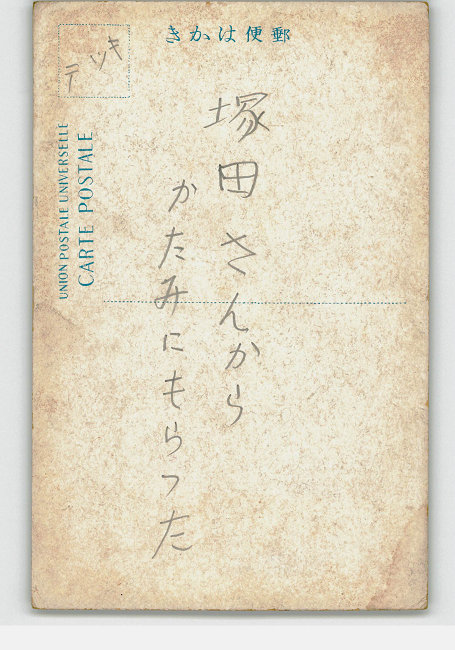 きかは便郵
キツテ
UNION POSTALE UNIVERSELLE
CARTE POSTALE
塚田さんから
かたみにもらつた